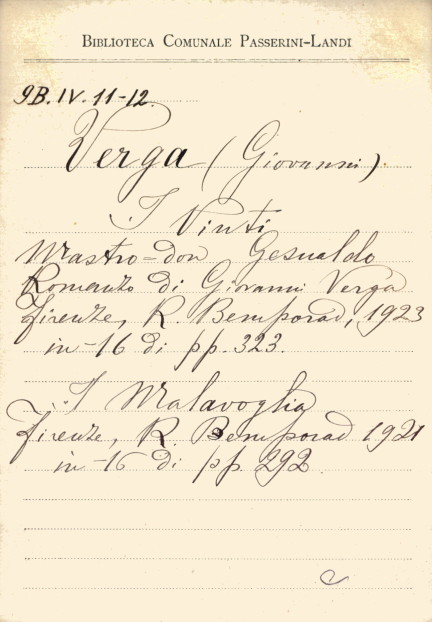 BIBLIOTECA COMUNALE PASSERINI-LANDI
9B.IV.11-12.
Verga (Giovanni).
I Vinti
Mastro-don Gesualdo
Romanzo di Giovanni Verga
Firenze, R. Bemporad, 1923
in-16 di pp. 323.
I Malavoglia
Firenze, R. Bemporad 1921
in-16 di pp. 292.